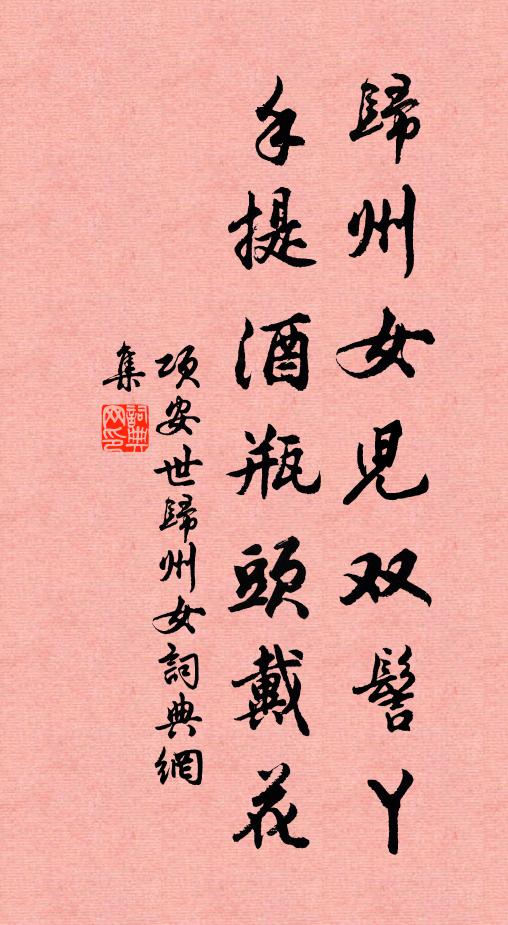 歸州女兒双髻丫
手提酒瓶頭戴花
項安世歸州女詞典網
集
詞典網印